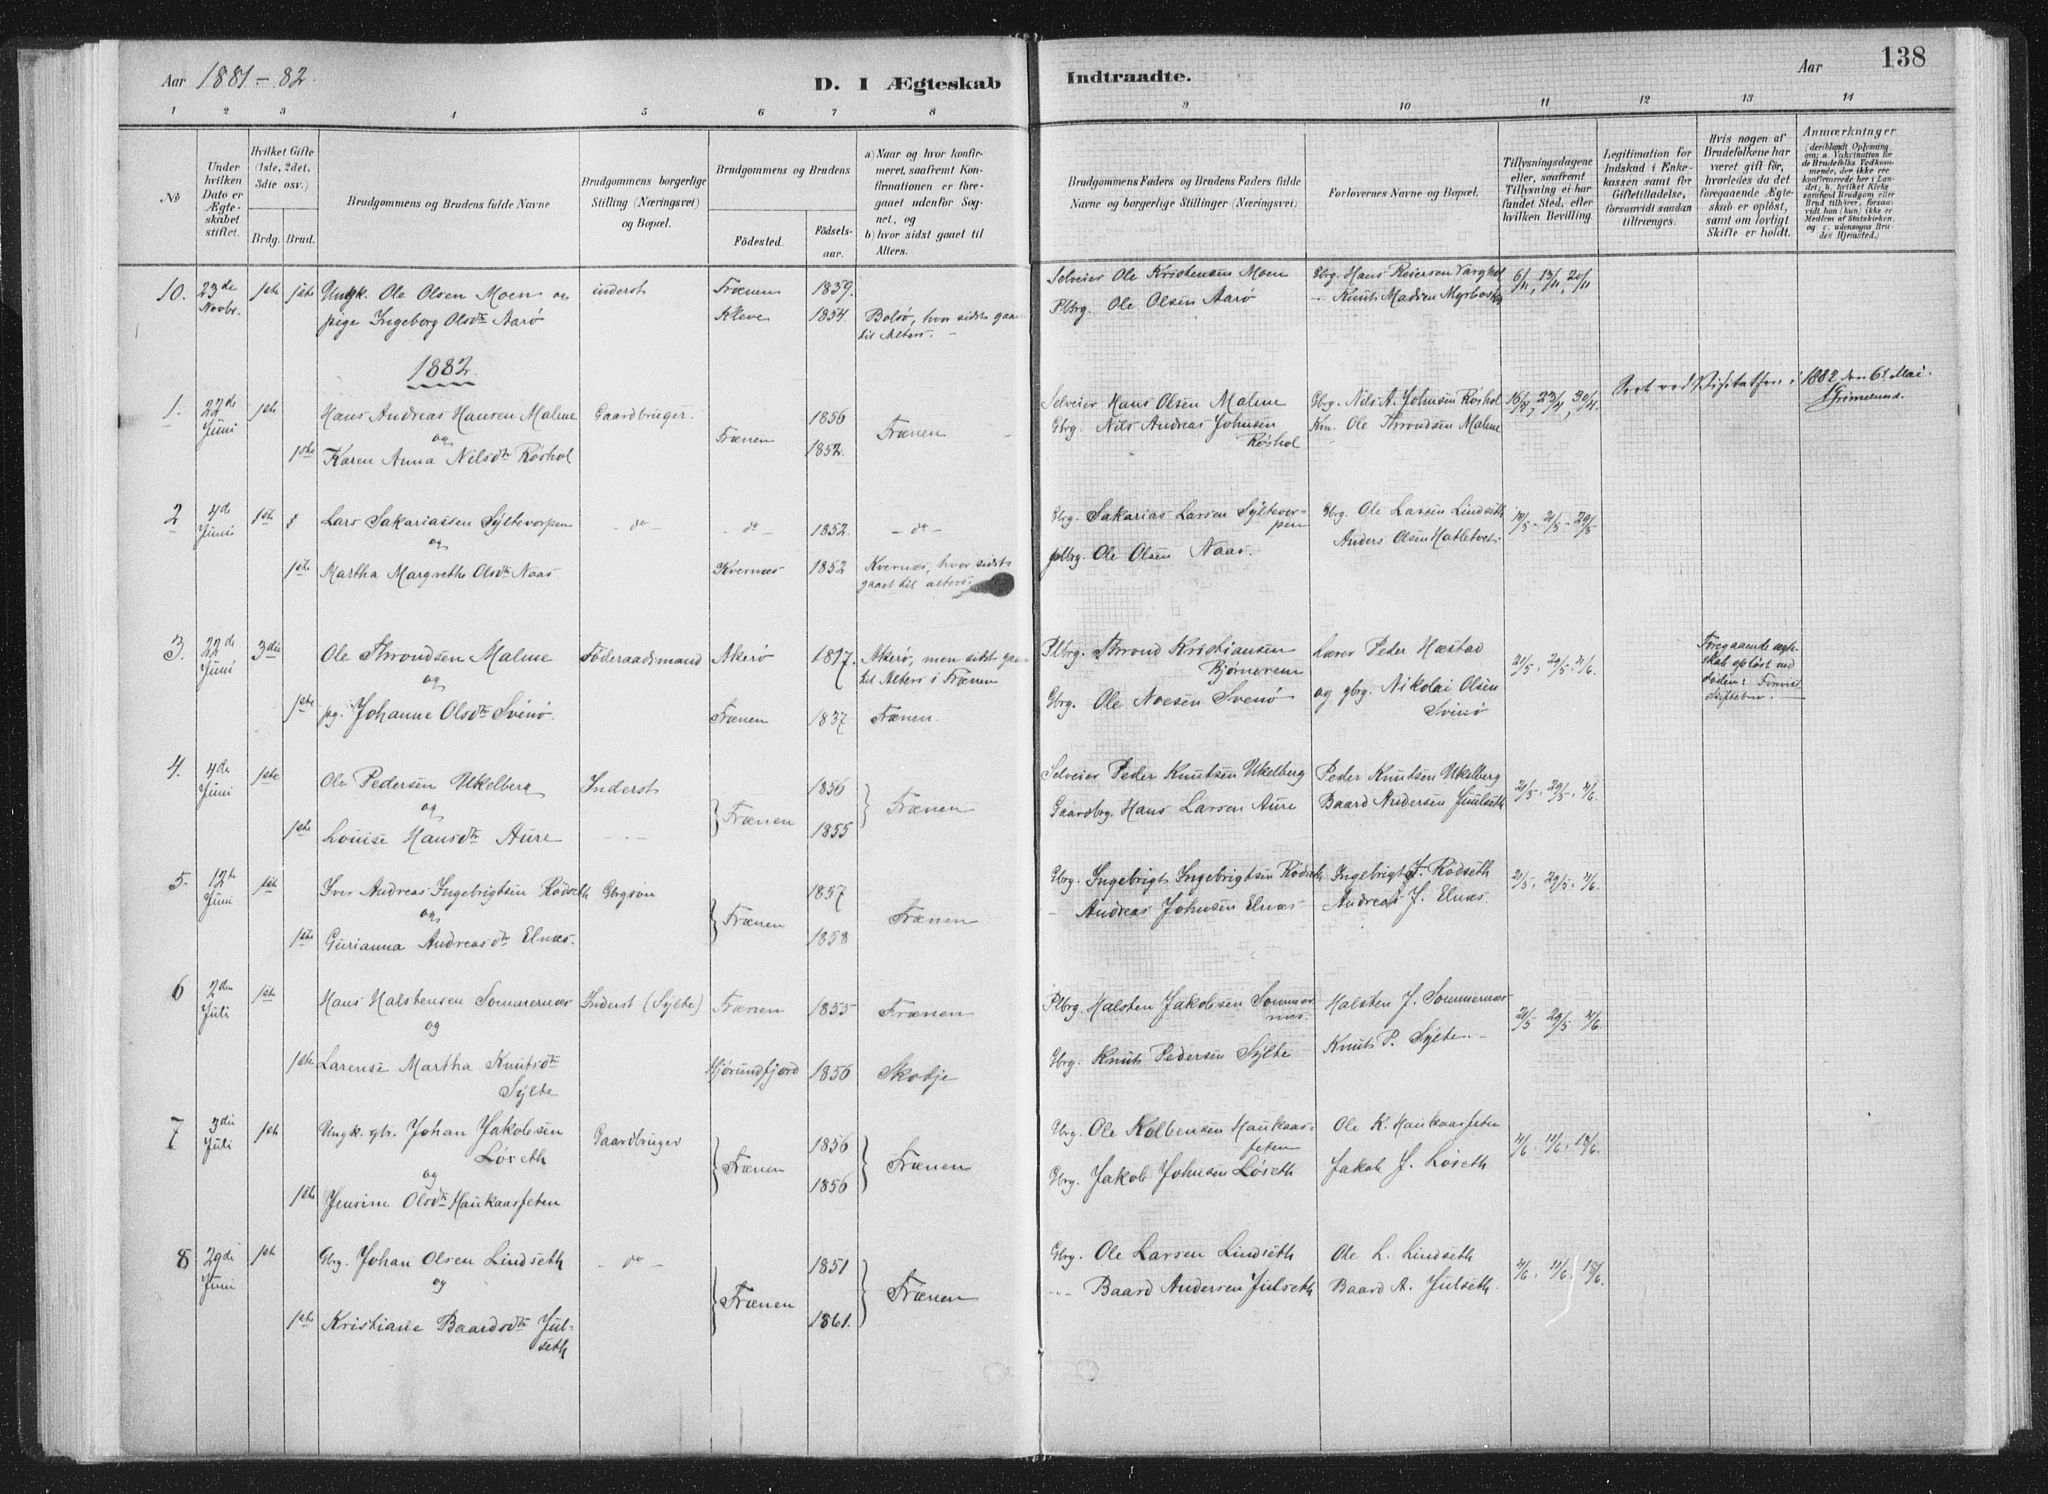 Aar 1881-82.
D. I Ægteskab Indtraadte.
Aar
138
1 2 3 4 5 6 7 8 9 10 11 12 13 14
No
Under hvilken Dato er Ægteskabet stiftet.
Hvilket Gifte (1ste, 2det, 3die osv.)
Brdg. Brud.
Brudgommens og Brudens fulde Navne
Brudgommens borgerlige Stilling (Næringsvei) og Bopæl.
Brudgommens og Brudens
Födested. Födselsaar.
a) Naar og hvor konfirmeret, saafremt Konfirmationen er foregaaet udenfor Sognet, og
b) hvor sidst gaaet til Alters.
Brudgommens Faders og Brudens Faders fulde Navne og borgerlige Stillinger (Næringsvei)
Forlovernes Navne og Bopæl.
Tillysningsdagene eller, saafremt Tillysning ei har fundet Sted, efter hvilken Bevilling.
Legitimation for Indskud i Enkekassen samt for Giftetilladelse, forsaavidt saadan tiltrænges.
Hvis nogen af Brudefolkene har været gift för, hvorledes du det foregaaende Ægteskab er oplöst, samt om lovligt Skifte er holdt.
Anmærkninger (deriblandt Oplysning om: a. Vakcination for de Brudefolks Vedkommende, der ikke ere konfirmerede her i Landet; b. hvilket Kirkesamfund Brudgom eller Brud tilhører, forsaavidt han (hun) ikke er Medlem af Statskirken, og c. udensogns Brudes Hjemsted.)
10. 23de Novbr. 1ste 1ste Ungk. Ole Olsen Moen og inderst Frænen 1839. Selveier Ole Kristensen Moen Gbrg. Hans Reiersen Varghol 6/11, 13/11, 20/11
pige Ingeborg Olsdtr Aarø Kleve 1854. Bolsø, hvor sidst gaaet til Alters. Plbrg. Ole Olsen Aarø Knut Madsen Myrbostad
1882.
1. 22de Juni 1ste Hans Andreas Hansen Malme Gaardbruger. 1856 Selveier Hans Olsen Malme Gbrg. Nils A. Johnsen Røshol 16/4, 23/4, 30/4.
og Frænen Frænen
1ste Karen Anna Nilsdtr Røshol 1852. Gbrg. Nils Andreas Johnsen Røshol Ole Throndsen Malme
1882 den 6t Mai. Grimelund.
2 4de Juni 1ste Lars Sakariassen Syltevorpen do do 1852. do Gbrg. Sakarias Larsen Syltevorpen Gbrg. Ole Larsen Lindseth 14/5 - 21/5 - 29/5
og
1ste Martha Margrethe Olsdtr Naas Kvernæs 1852 Kvernæs, hvor sidst gaaet til alters. plbrg. Ole Olsen Naas. Anders Olsen Hatletvet
3. 22de Juni 3die Ole Throndsen Malme Föderaadsmand Akerø 1817. Akerø, men sidst gaaet til Alters i Frænen Plbrg. Thrond Kristiansen Bjørnerem Lærer Peder Hæstad 21/5. 29/5. 4/6. Foregaaende ægteskab opløst ved døden.
og
1ste pg. Johanne Olsdtr Svinø. Frænen 1837 Frænen. Gbrg. Ole Noesen Svenø og gbrg. Nikolai Olsen Svinø
4. 4de Juni 1ste Ole Pedersen Ukelberg Inderst 1856 Selveier Peder Knutsen Ukelberg Peder Knutsen Ukelberg 21/5. 29/5. 4/6.
og Frænen Frænen
1ste Louise Hansdtr Aure 1855 Gaardbrg. Hans Larsen Aure Baard Andersen Juulseth
5. 12te Juni 1ste Iver Andreas Ingebrigtsen Rödseth Gbrgsøn 1857 Gbrg. Ingebrigt Ingebrigtsen Rödseth Ingebrigt J. Rödseth 21/5. 29/5. 4/6.
og Frænen Frænen
1ste Gurianna Andreasdtr Elnæs. 1858 Andreas Johnsen Elnæs Andreas J. Elnæs.
6 2den Juli 1ste Hans Halstensen Sommernæs Inderst (Sylte) Frænen 1855 Frænen Plbrg. Halsten Jakobsen Sommernæs. Halsten J. Sommernæs 21/5 29/5 4/6.
og
1ste Larense Martha Knutsdtr Sylte Hjørundfjord 1856 Skodje Gbrg. Knut Pedersen Sylte Knut P. Sylte.
7 3die Juli 1ste Ungk. gbr. Johan Jakobsen Løseth Gaardbruger 1856 Gbrg. Ole Kolbensen Haukaasfeten Ole K. Haukaasfeten 4/6. 11/6. 18/6.
og Frænen Frænen
1ste Jensine Olsdtr Haukaasfeten 1856 Gbrg. Jakob Johnsen Løseth Jakob J. Løseth
8 29de Juni 1ste Gbrg. Johan Olsen Lindseth do 1851 Gbrg. Ole Larsen Lindseth Ole L. Lindseth 4/6. 11/6. 18/6.
og Frænen Frænen
1ste Kristiane Baardsdtr Julseth 1861. Baard Andersen Julseth Baard A. Julseth.